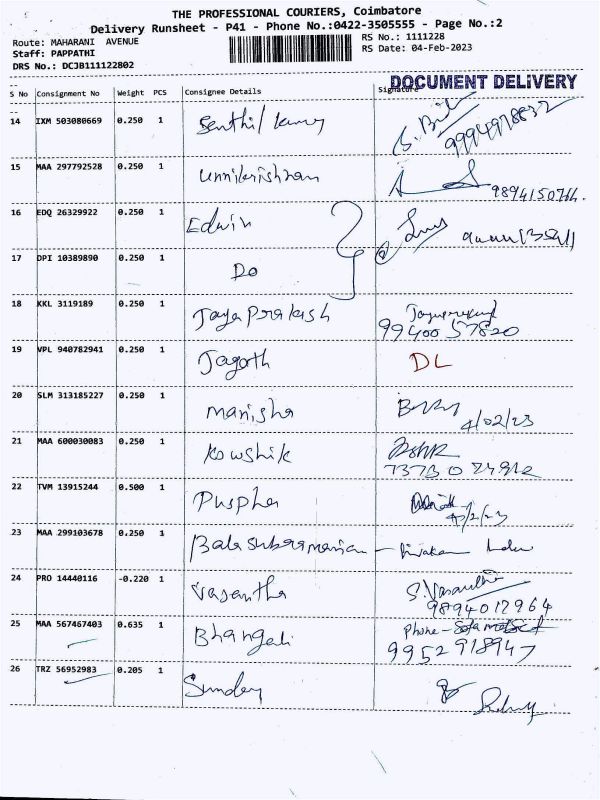 THE PROFESSIONAL COURIERS, Coimbatore
Delivery Runsheet - P41 - Phone No.:0422-3505555 - Page No.:2
Route: MAHARANI AVENUE
Staff: PAPPATHI
DRS No.: DCJB111122802
RS No.: 1111228
RS Date: 04-Feb-2023
DOCUMENT DELIVERY
S No Consignment No Weight PCS Consignee Details Signature
14 IXM 503080669 0.250 1 Senthil kumar
15 MAA 297792528 0.250 1 Unnikrishnan
16 EDQ 26329922 0.250 1 Edwin
17 DPI 10389890 0.250 1 Do
18 KKL 3119189 0.250 1 Jaya Prakash
9940057820
19 VPL 940782941 0.250 1 Jagath DL
20 SLM 313185227 0.250 1 Manisha
4/02/23
21 MAA 600030083 0.250 1 Kowshik
22 TVM 13915244 0.500 1 Puspha
23 MAA 299103678 0.250 1 Balasubramanian
24 PRO 14440116 -0.220 1 Vasantha S. Vasantha
9894017964
25 MAA 567467403 0.635 1 Bhangali Phone -
9952918947
26 TRZ 56952983 0.205 1 Sunday